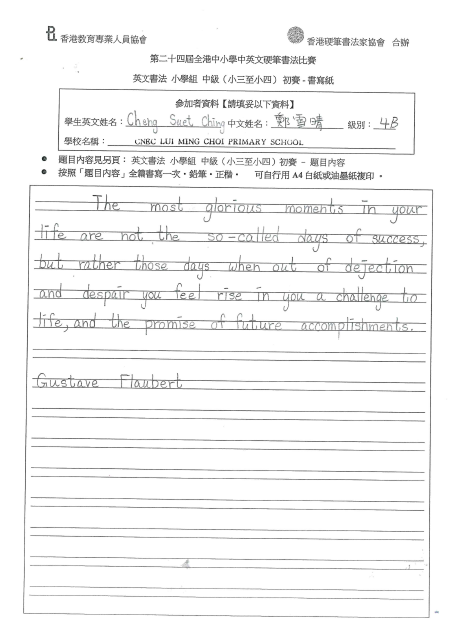 香港教育專業人員協會
香港硬筆書法家協會 合辦
第二十四屆全港中小學中英文硬筆書法比賽
英文書法 小學組 中級（小三至小四）初賽 - 書寫紙
參加者資料【請填妥以下資料】
學生英文姓名： Cheng Suet Ching 中文姓名： 鄭雪晴 級別： 4B
學校名稱： CNEC LUI MING CHOI PRIMARY SCHOOL
● 題目內容見另頁： 英文書法 小學組 中級（小三至小四）初賽 – 題目內容
● 按照「題目內容」全篇書寫一次・鉛筆・正楷・ 可自行用 A4 白紙或油墨紙複印・
The most glorious moments in your
life are not the so-called days of success,
but rather those days when out of dejection
and despair you feel rise in you a challenge to
life, and the promise of future accomplishments.
Gustave Flaubert